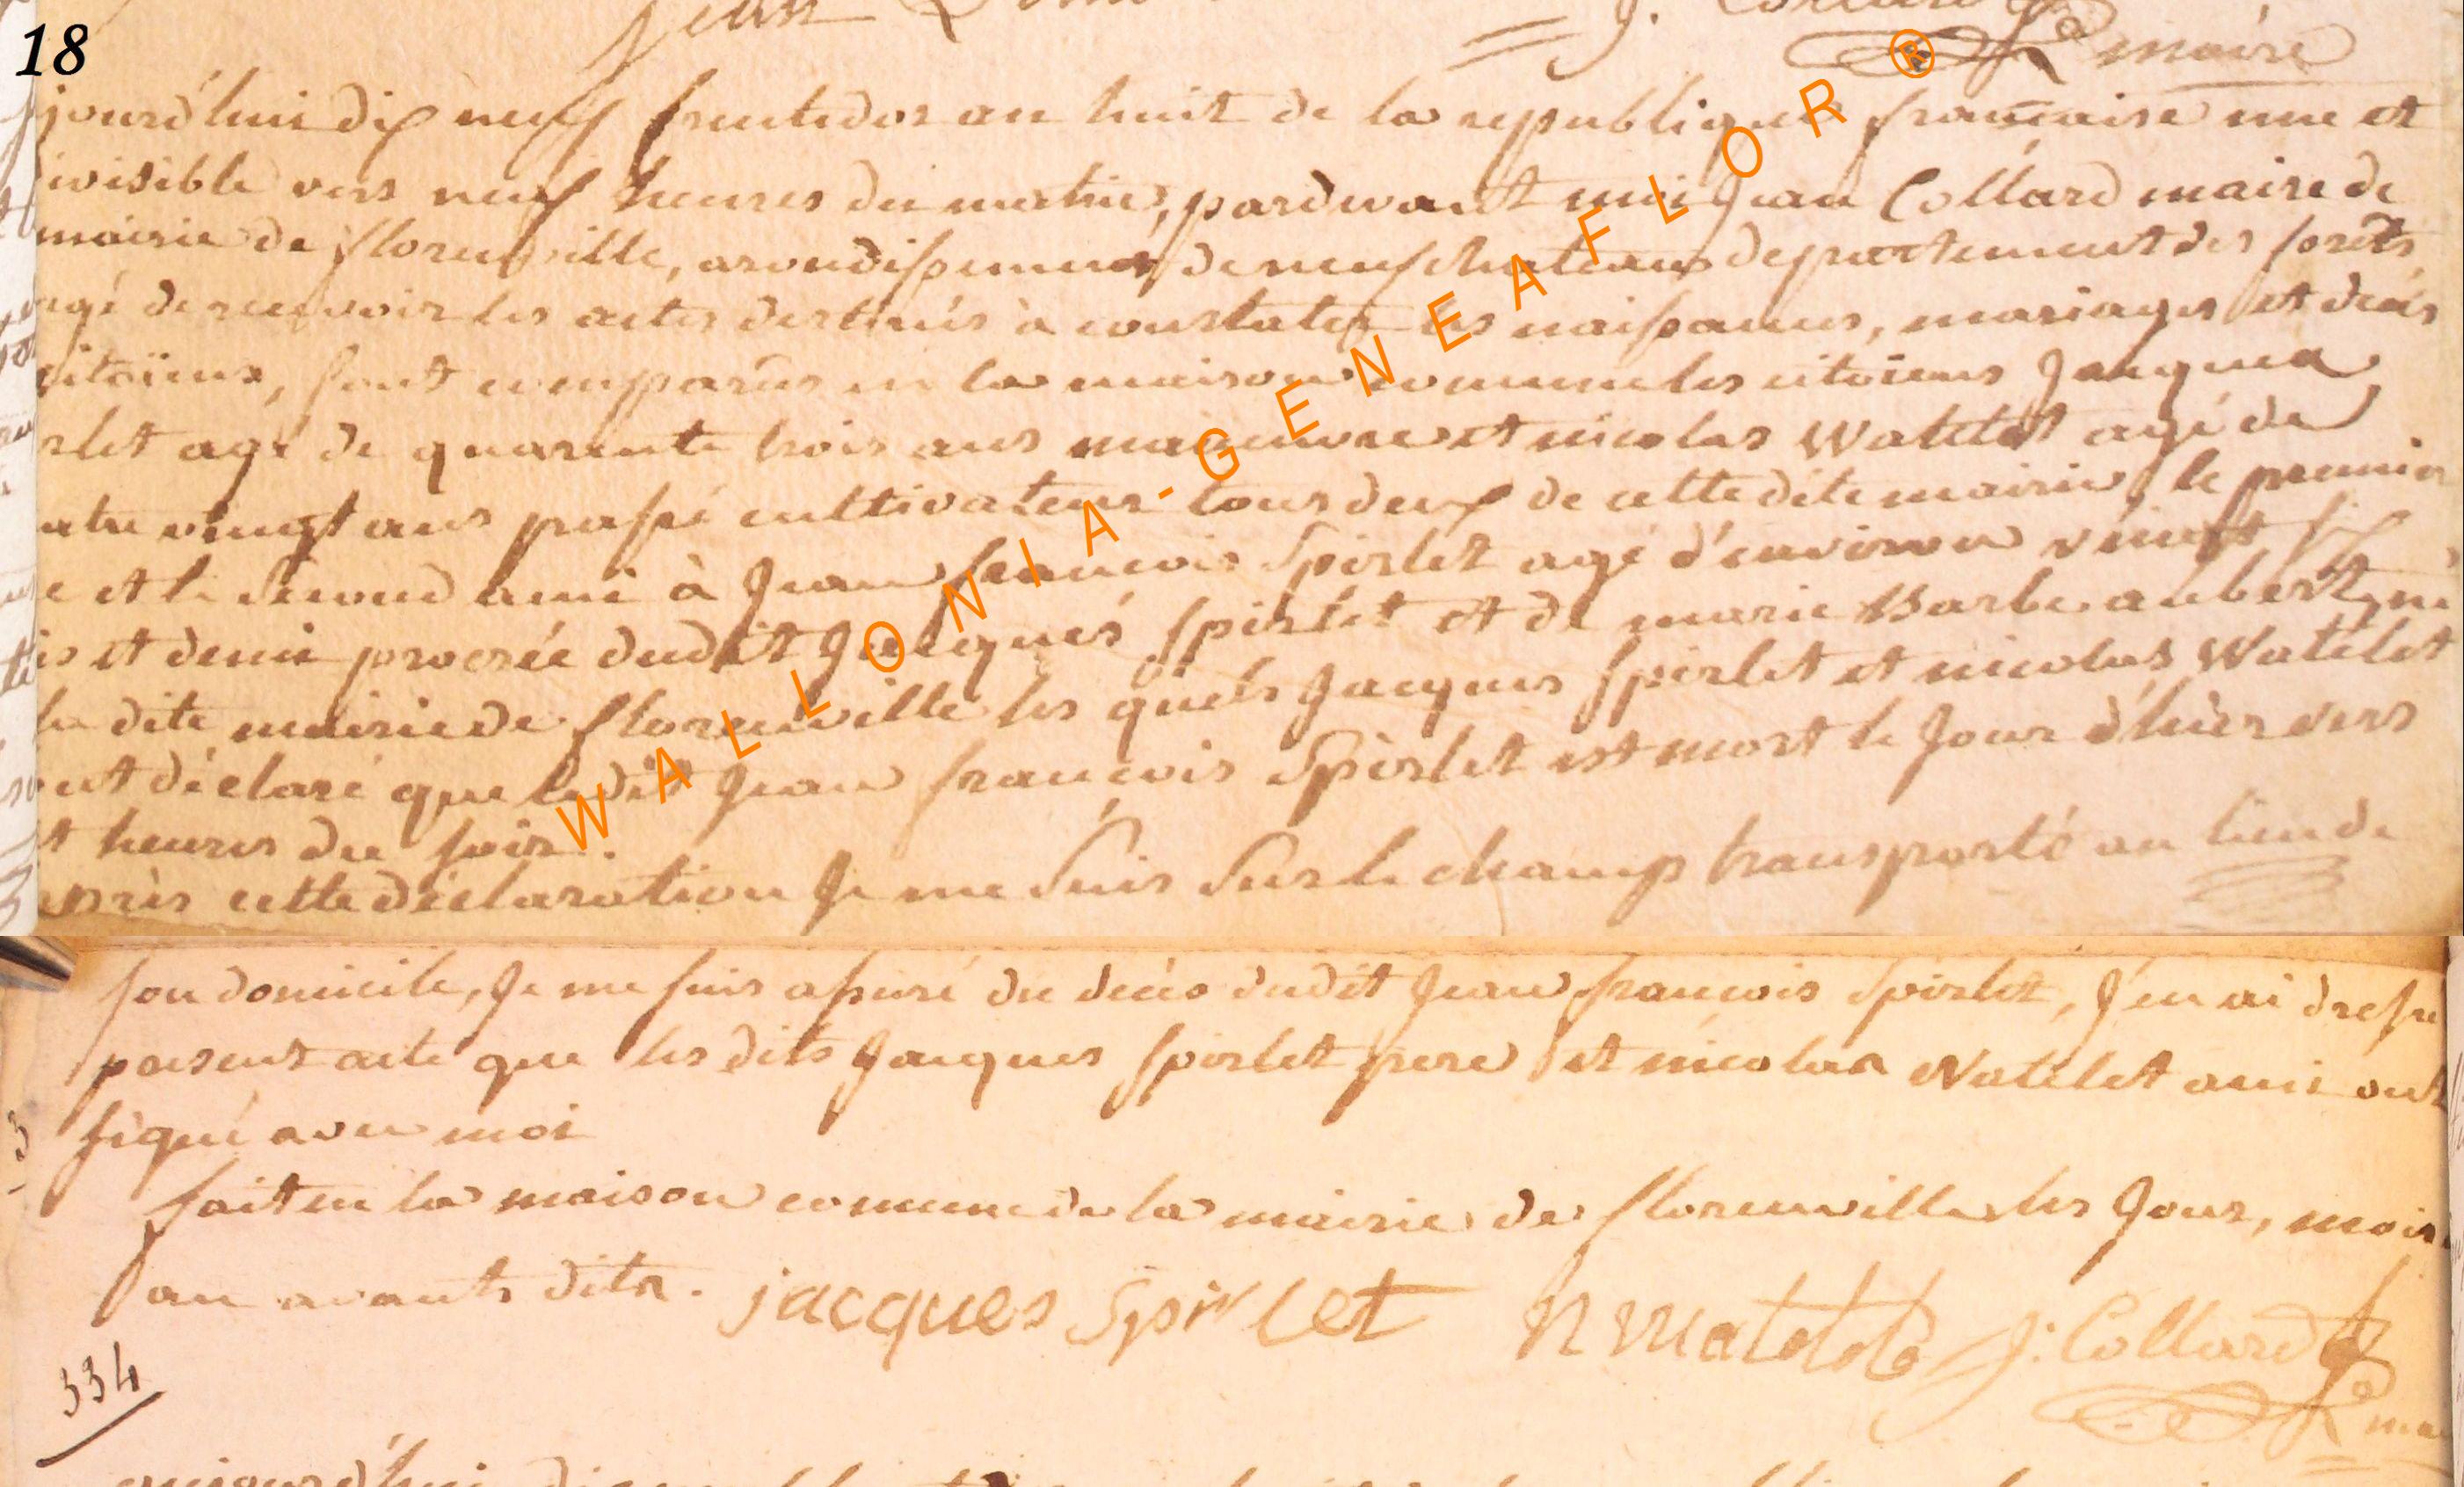 18
jean
J. Collard
maire
jourd'hui dix neuf fructidor an huit de la republique francaise une et
ivisible vers neuf heures du matin, pardevant moi Jean Collard maire de
mairie de florenville, arondissement de neufchateau departement des forêts
gé de recevoir les actes destinés à constater les naissances, mariages et décés
citoïens, sont comparus en la maison commune les citoïens Jacques
rlet agé de quarente trois ans manœuvre et nicolas Watelet agé de
atre vingt ans passé cultivateurs tous deux de cette dite mairie, le premier
e et le second ami à Jean francois Spirlet agé d'environ vingt six
is et demi procrée dudit Jacques Spirlet et de marie Barbe aubert, ne
la dite mairie de florenville les quels Jacques Spirlet et nicolas Watelet
ont déclaré que ledit Jean francois Spirlet est mort le jour d'hier vers
t heures du soir.
après cette déclaration Je me suis sur le champ transporté au lieu de
son domicile, Je me suis assuré du décès dudit Jean francois Spirlet, J'en ai dressé
present acte que les dits Jacques Spirlet pere et nicolas Watelet ami ont
signé avec moi
fait en la maison comune de la mairie de florenville les Jour, mois
an avants dits. jacques Spirlet n watelet J. Collard
ma
334
aujourd'hui
WALLONIA-GENEAFLOR ®